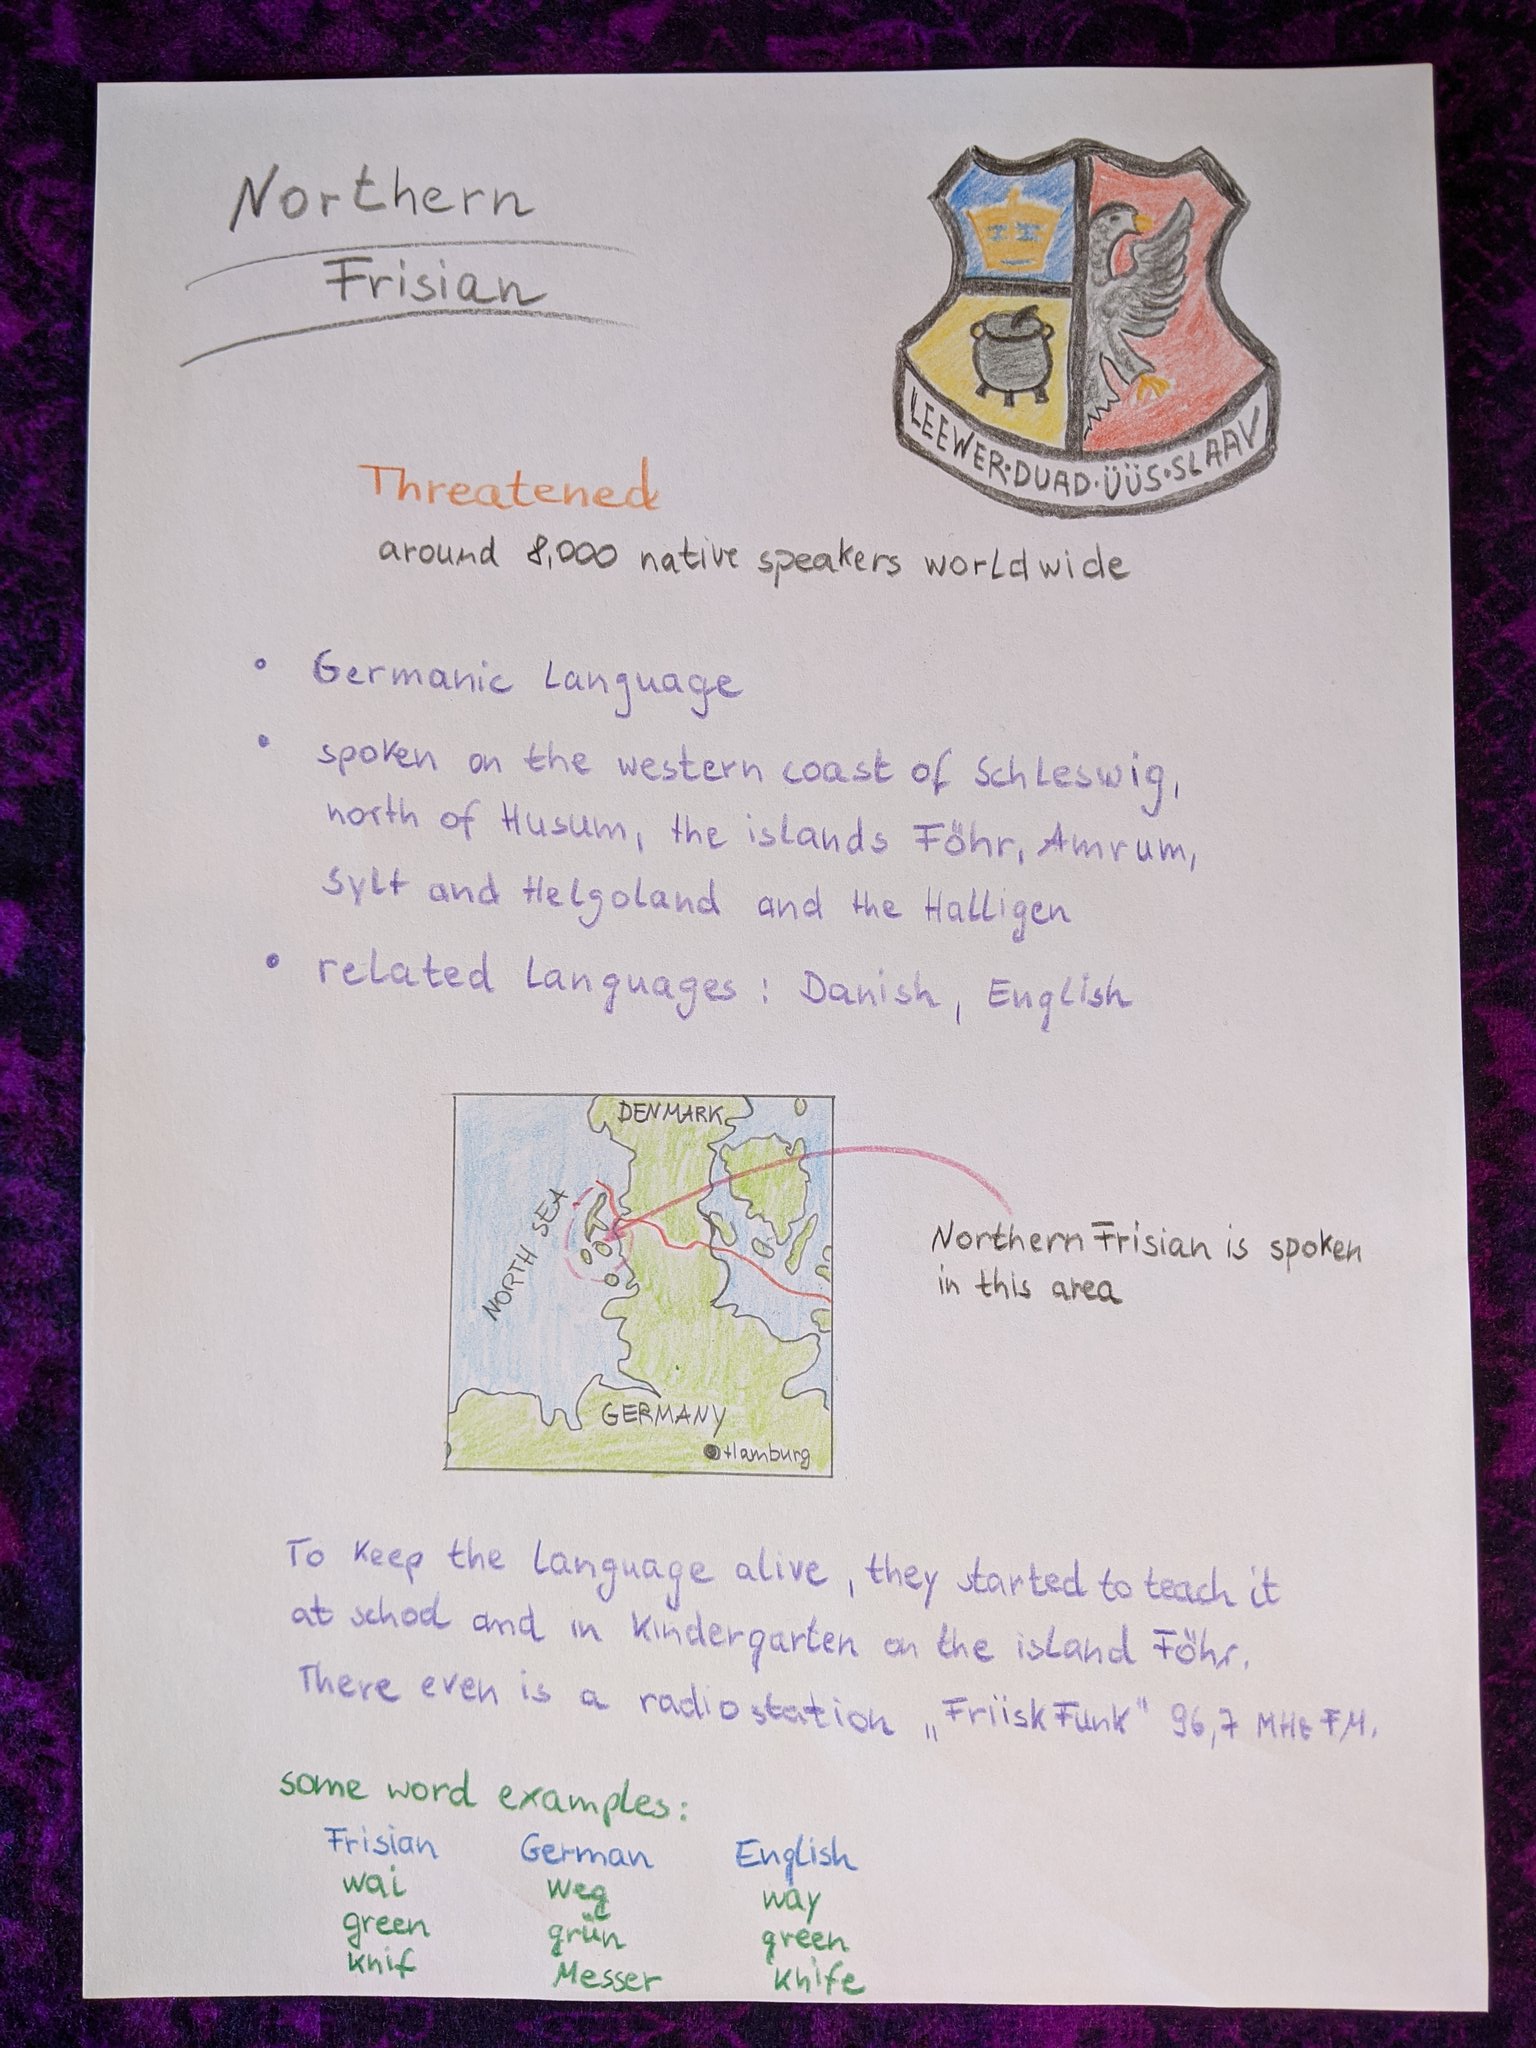 Northern
Frisian
LEEWER·DUAD·ÜÜS·SLAAV
Threatened
around 8,000 native speakers worldwide
• Germanic Language
• spoken on the western coast of Schleswig,
north of Husum, the islands Föhr, Amrum,
Sylt and Helgoland and the Halligen
• related Languages: Danish, English
DENMARK
NORTH SEA
GERMANY
Hamburg
Northern Frisian is spoken
in this area
To keep the Language alive, they started to teach it
at school and in Kindergarten on the island Föhr.
There even is a radiostation „FriiskFunk" 96,7 MHz FM.
some word examples:
Frisian German English
wai weg way
green grün green
knif Messer knife